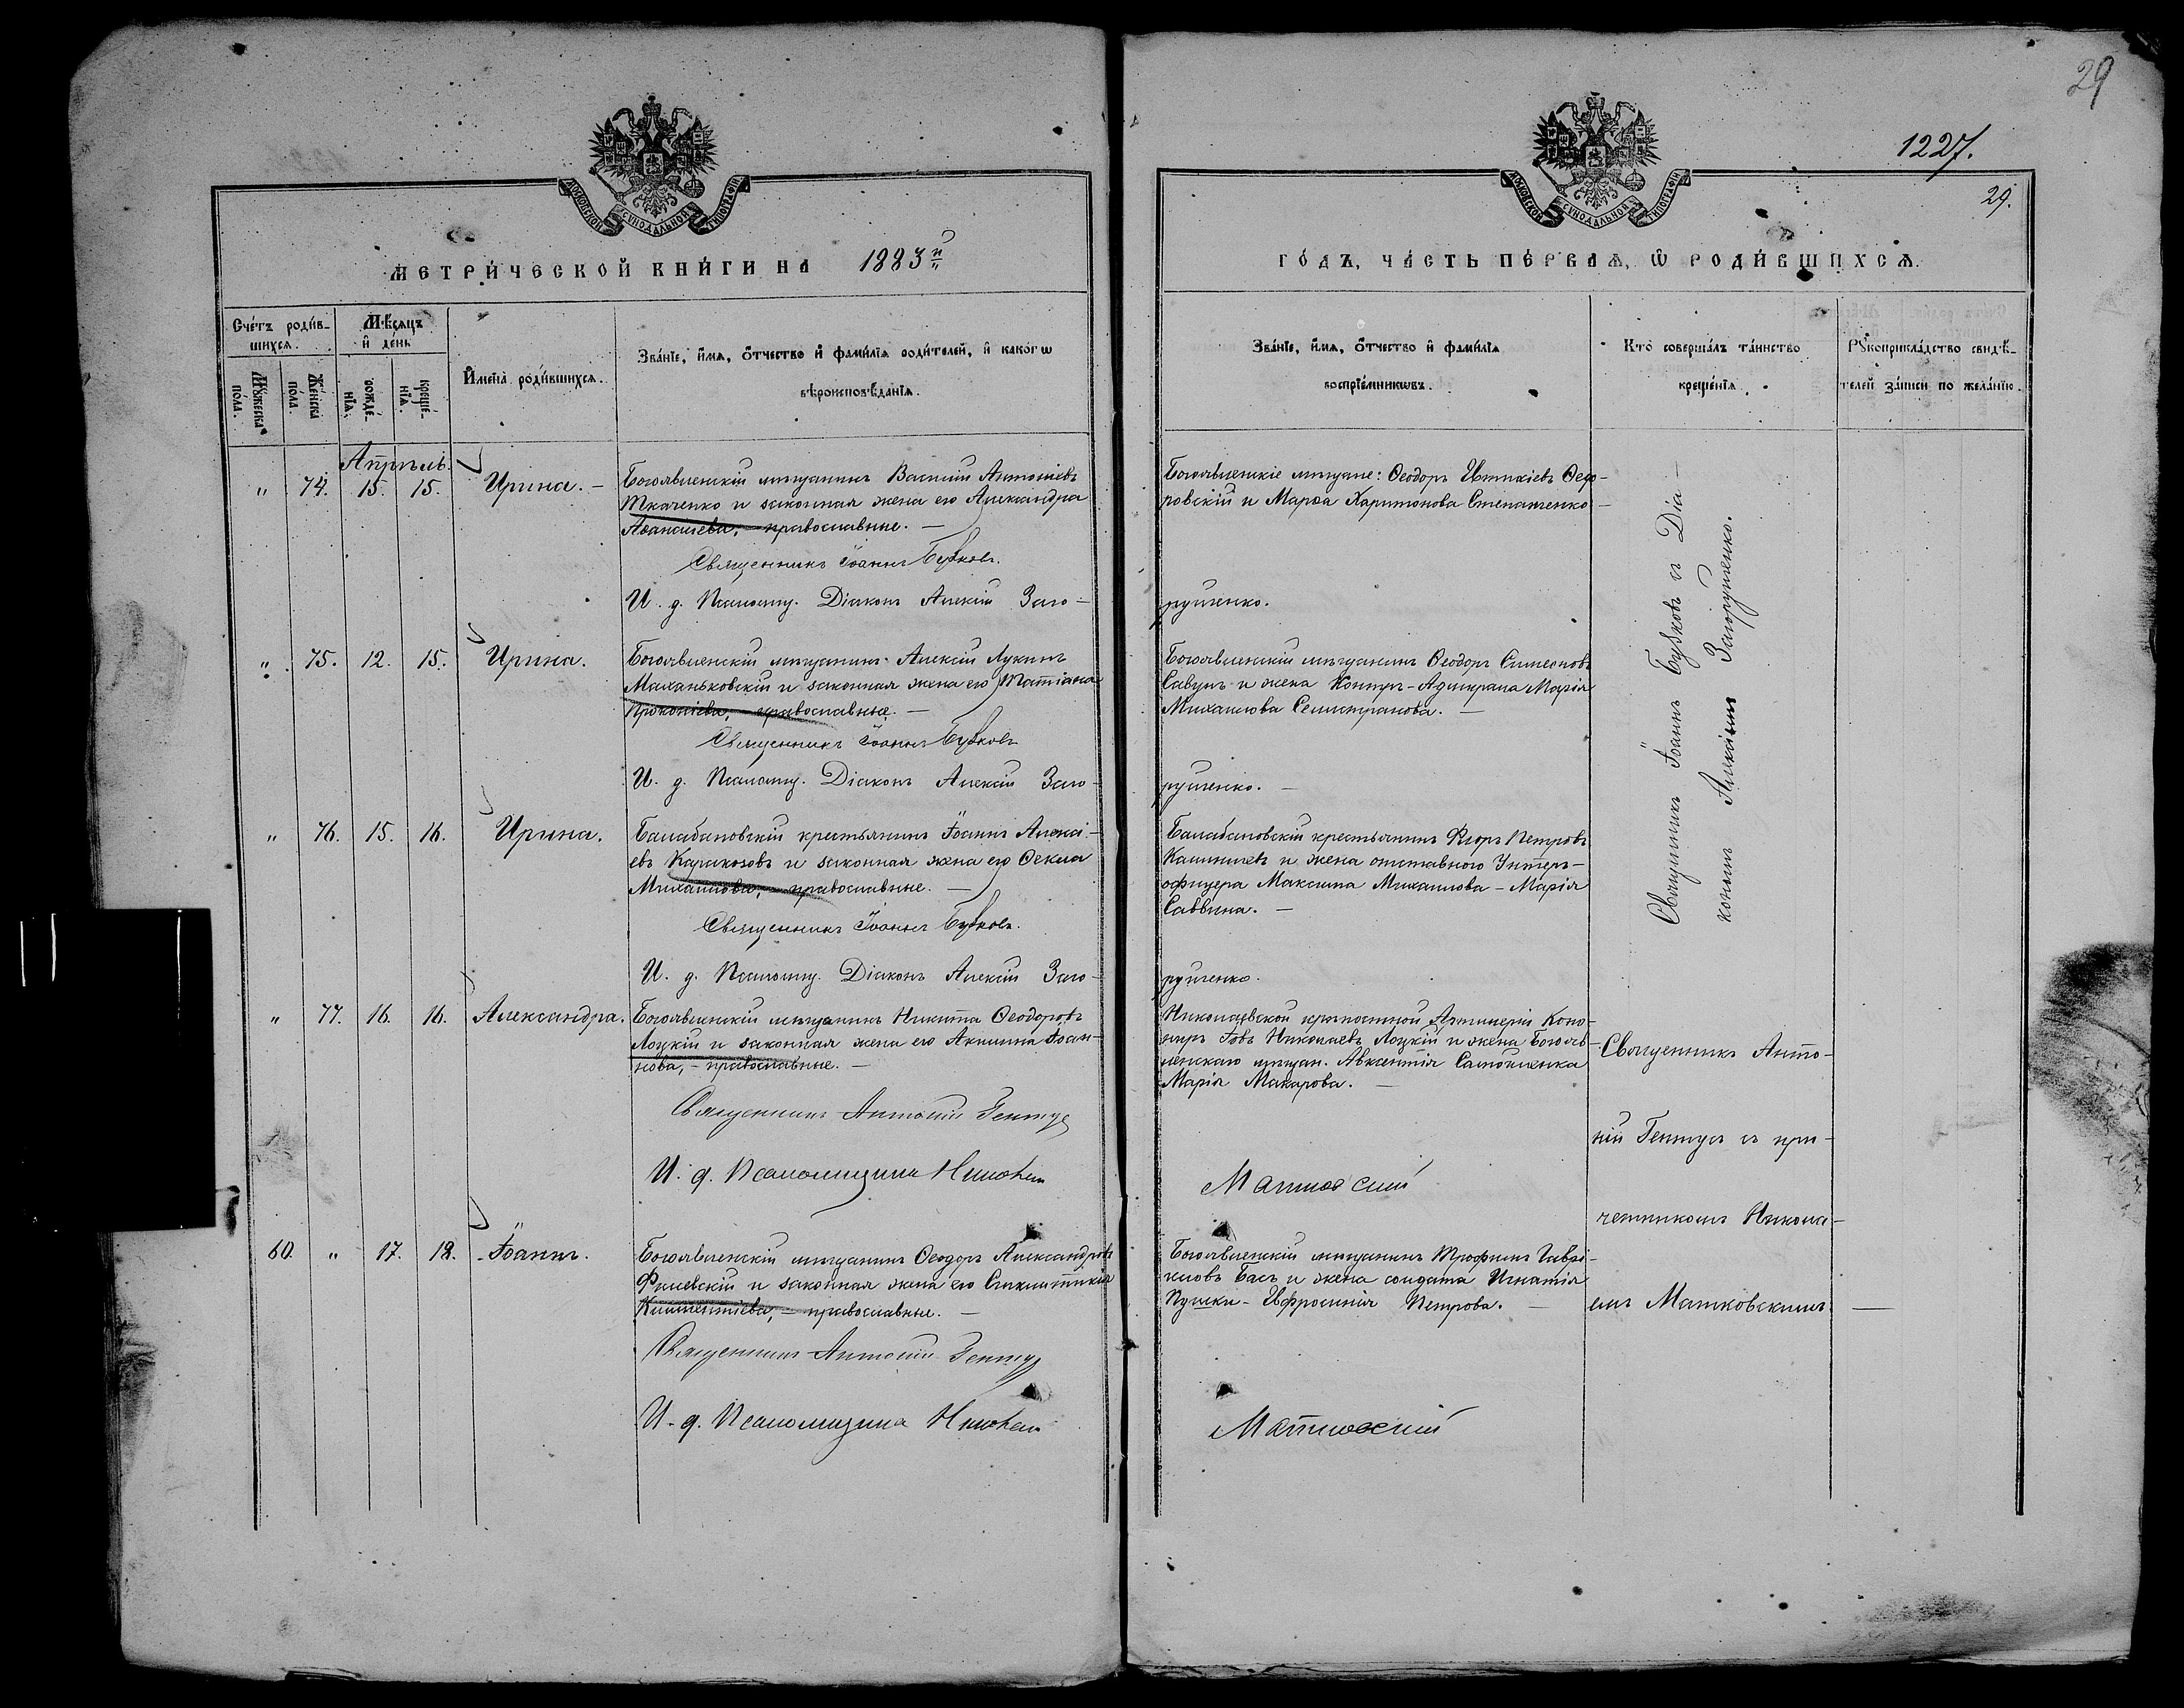 29
1227.
29.
МОСКОВСКОЙ СѴНОДАЛЬНОЙ ТИПОГРАФІИ
МОСКОВСКОЙ СѴНОДАЛЬНОЙ ТИПОГРАФІИ
МЕТРИ́ЧЕСКОЙ КНИ́ГИ НА 1883й
ГО́ДЪ, ЧА́СТЬ ПЕ́РВАѦ, Ѿ РОДИ́ВШИХСѦ.
Сче́тъ роди́в-
шихсѧ.
Мѣ́сѧцъ
и́ де́нь
Мꙋ́жеска
по́ла.
Же́нска
по́ла.
рожде́-
нїѧ.
креще́-
нїѧ.
И҆мена̀ роди́вшихсѧ.
Зва́нїе, и҆́мѧ, ѻ҆́тчество и҆ фами́лїѧ роди́телей, и҆ како́гѡ
вѣроисповѣ́данїѧ.
Зва́нїе, и҆́мѧ, ѻ҆́тчество и҆ фами́лїѧ
воспрїе́мникѡвъ.
Кто̀ соверша́лъ та́инство
креще́нїѧ.
Рꙋкоприкла́дство свидѣ́-
телей за́писи по жела́нїю.
Апрѣль.
" 74. 15. 15. Ирина. –
Богоявленскій мѣщанинъ Василій Антоніевъ
Ткаченко и законная жена его Александра
Аѳанасіева, – православные. –
Священникъ Іоаннъ Бубковъ.
И. д. Псаломщ. Діаконъ Алексій Заго-
Богоявленскіе мѣщане: Ѳеодоръ Ѳедо-
ровскій и Марѳа Харитонова Степаненко –
рушенко.
" 75. 12. 15. Ирина.
Богоявленскій мѣщанинъ Алексій Лукинъ
Маханьковскій и законная жена его Татіана
Прокопіева, – православные. –
Священникъ Іоаннъ Бубковъ
И. д. Псаломщ. Діаконъ Алексій Заго-
Богоявленскій мѣщанинъ Ѳеодоръ Симеоновъ
Савунъ и жена Контръ-Адмирала Марія
Михаилова Селистранова. –
рушенко. –
" 76. 15. 16. Ирина.
Балабановскій крестьянинъ Іоаннъ Алексі-
евъ Каракозовъ и законная жена его Ѳекла
Михаилова, – православные. –
Священникъ Іоаннъ Бубковъ.
И. д. Псаломщ. Діаконъ Алексій Заго-
Балабановскій крестьянинъ Петровъ
Калиничевъ и жена отставного Унтеръ-
офицера Максима Михаилова – Марія
Саввина. –
рушенко.
Священникъ Іоаннъ Бубковъ съ Діа-
кономъ Алексіемъ Загорушенко.
" 77. 16. 16. Александра.
Богоявленскій мѣщанинъ Никита Ѳеодоровъ
Лоцкій и законная жена его Акилина Іоан-
нова, – православные. –
Священникъ Антоній Гентуе
И. д. Псаломщика Николай
Николаевской крѣпостной Артиллеріи Кано-
ниръ Іовъ Николаевъ Лоцкій и жена Богояв-
ленскаго мѣщан. Авксентія Самойленка
Марія Макарова. –
Матковскій
Священникъ Анто-
ній Гентуе съ при-
четникомъ Никола-
емъ Матковскимъ –
60. " 17. 18. Іоаннъ.
Богоявленскій мѣщанинъ Ѳеодоръ Александровъ
Филевскій и законная жена его Синклитикія
Климентіева, – православные. –
Священникъ Антоній Гентуе
И. д. Псаломщика Николай
Богоявленскій мѣщанинъ Трофимъ Гаврі-
иловъ Басъ и жена солдата Игнатія
Пушки – Евфросинія Петрова. –
Матковскій